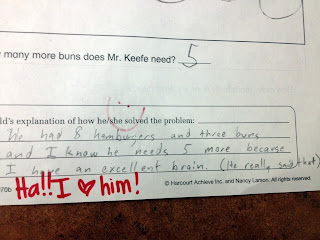 many more buns does Mr. Keefe need? 5
ld's explanation of how he/she solved the problem:
He had 8 hamburgers and three buns
and I know he needs 5 more because
I have an excellent brain. (He really said that)
70b Ha!! I ♥ him!
© Harcourt Achieve Inc. and Nancy Larson. All rights reserved.